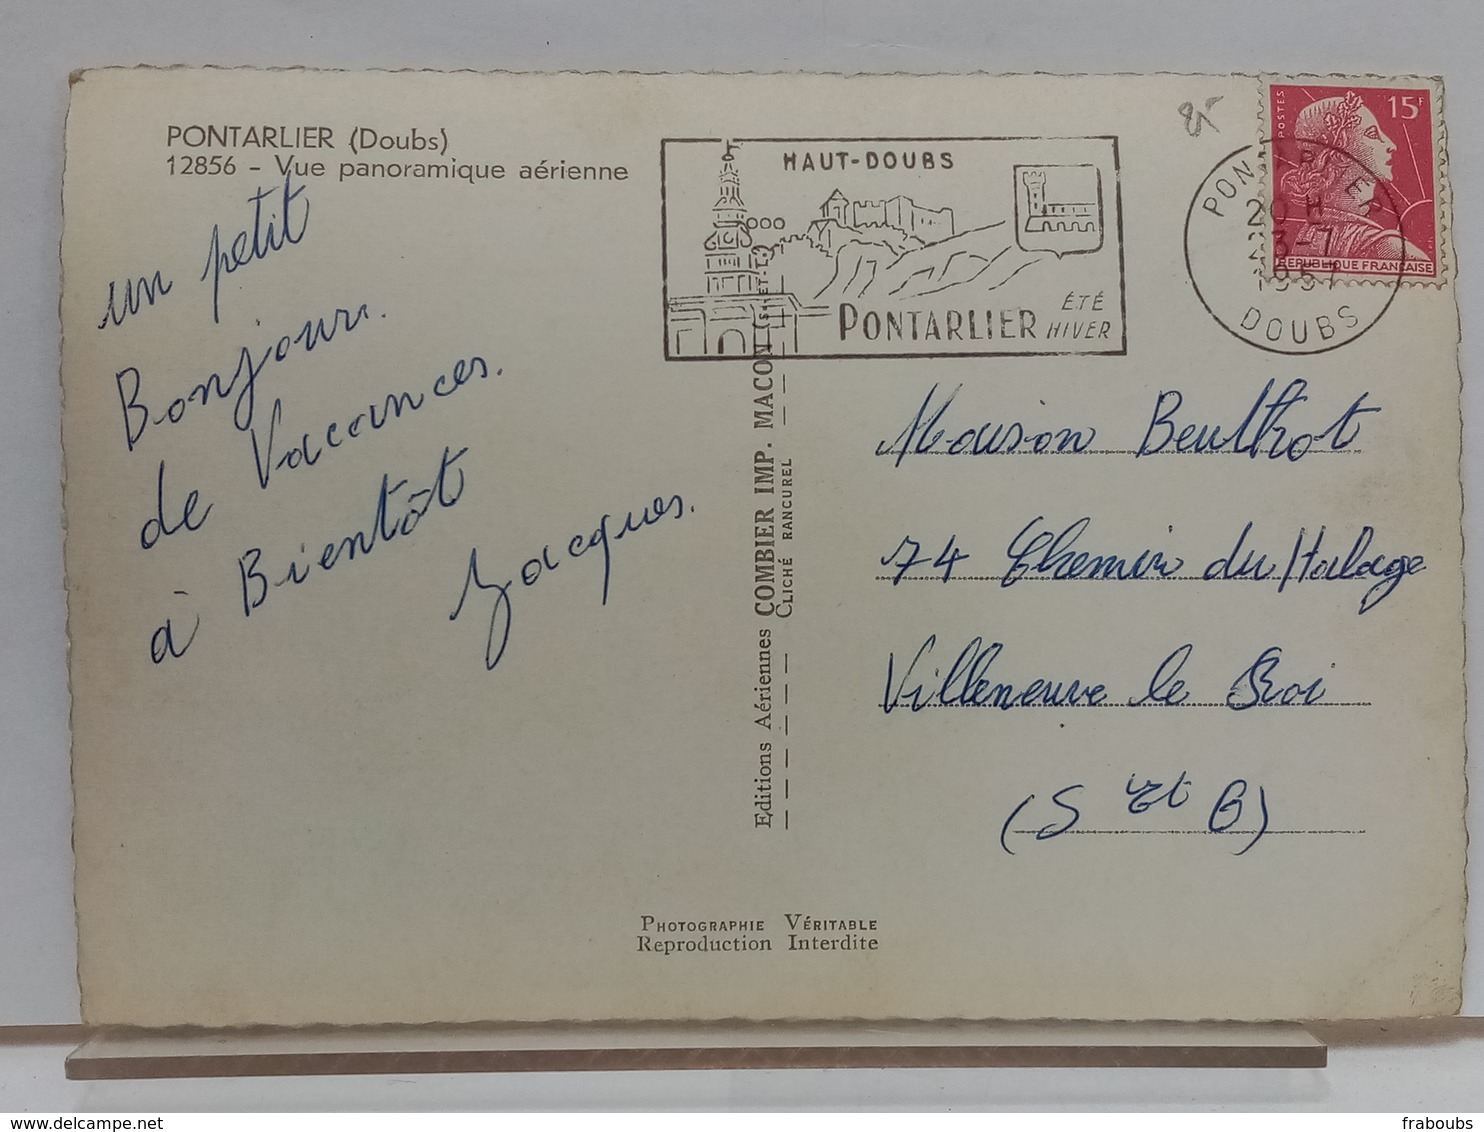 PONTARLIER (Doubs)
12856 - Vue panoramique aérienne
un petit
Bonjour.
de Vacances.
à Bientôt
Jacques.
HAUT-DOUBS
PONTARLIER
ÉTÉ
HIVER
POSTES
15F
REPUBLIQUE FRANÇAISE
20 H
1957
DOUBS
Editions Aériennes COMBIER IMP. MACON (S.-ET-L.)
CLICHÉ RANCUREL
Maison Beulthot
74 Chemin du Halage
Villeneuve le Roi
(S et O)
PHOTOGRAPHIE VÉRITABLE
Reproduction Interdite
fraboubs